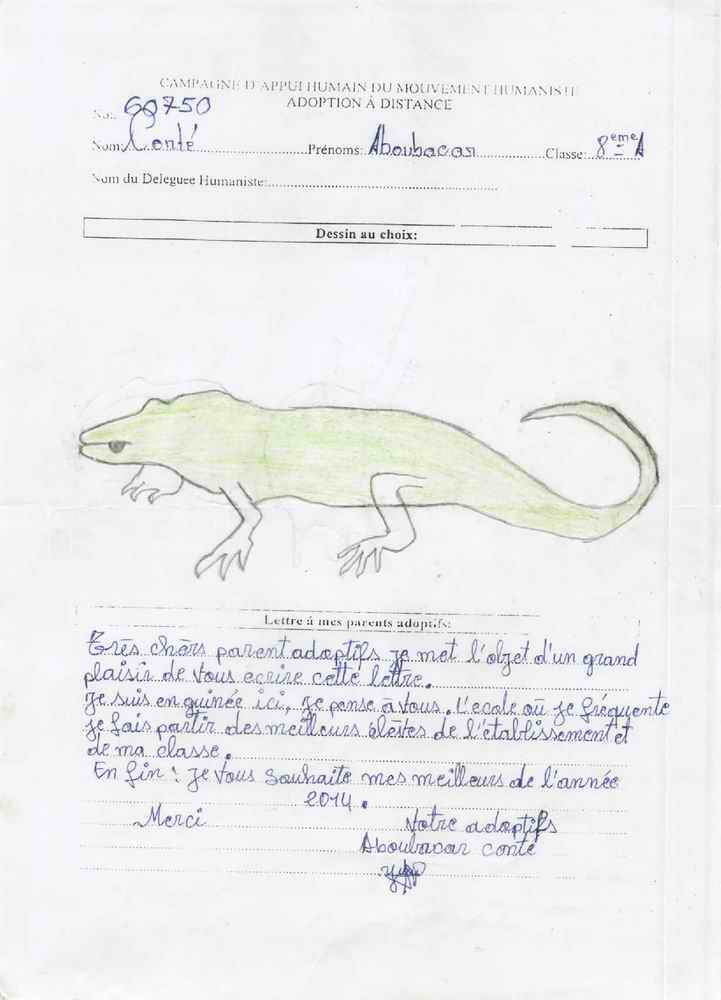 CAMPAGNE D'APPUI HUMAIN DU MOUVEMENT HUMANISTE
ADOPTION Á DISTANCE
No: 69750
Nom: Conté Prénoms: Aboubacar Classe: 8ème A
Nom du Deleguee Humaniste:
Dessin au choix:
Lettre á mes parents adoptifs:
Très chèrs parent adoptifs je met l'objet d'un grand
plaisir de vous ecrire cette lettre.
Je suis en guinée ici, je pense à vous. L'ecole où je fréquente
je fais partir des meilleurs élèves de l'établissement et
de ma classe.
En fin : je vous souhaite mes meilleurs de l'année
2014.
Merci Votre adoptifs
Aboubacar conté